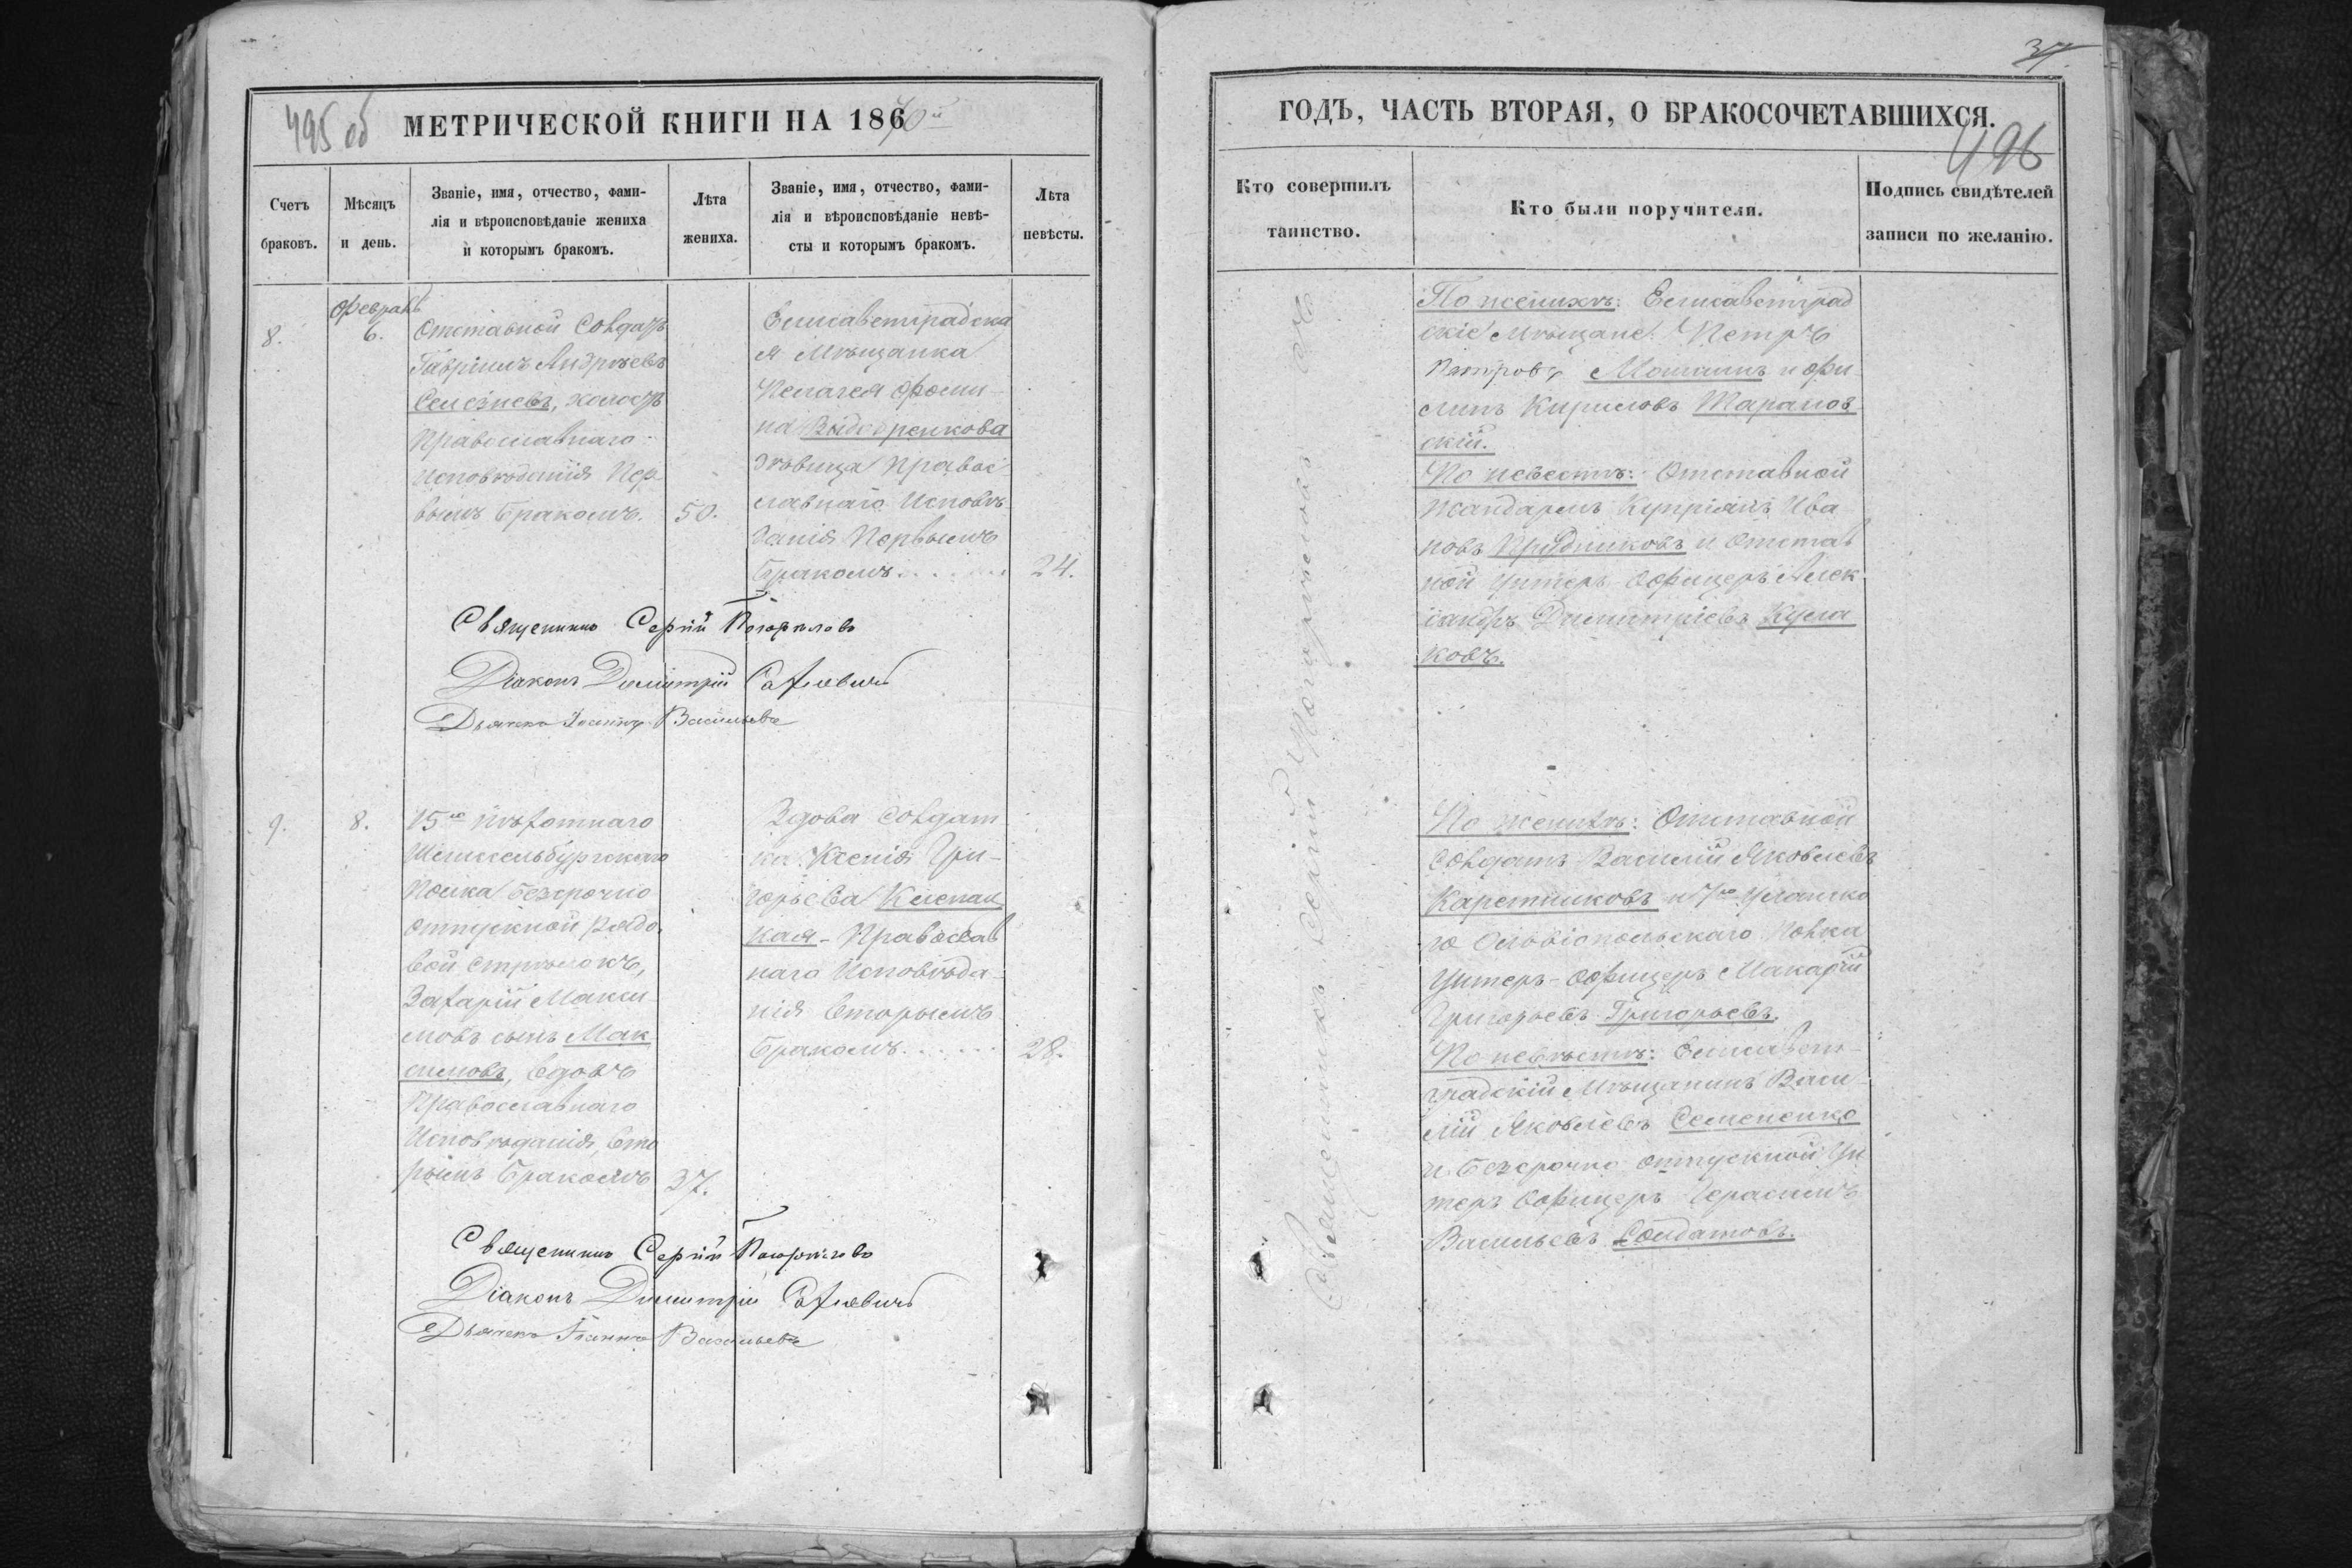 495 об
МЕТРИЧЕСКОЙ КНИГИ НА 1870й
Счетъ
браковъ.
Мѣсяцъ
и день.
Званіе, имя, отчество, фами-
лія и вѣроисповѣданіе жениха
и которымъ бракомъ.
Лѣта
жениха.
Званіе, имя, отчество, фами-
лія и вѣроисповѣданіе невѣ-
сты и которымъ бракомъ.
Лѣта
невѣсты.
8.
Февраль
6.
Отставной Солдатъ
Гавріилъ Андреевъ
Селезневъ, холостъ
Православнаго
исповѣданія Пер
вымъ бракомъ.
50.
Елисаветградска
я Мѣщанка
Пелагея Фоми
на
дѣвица Правос
лавнаго Исповѣ
данія Первымъ
бракомъ.......
24.
Священникъ Сергій Погорѣловъ
Діаконъ Димитрій
Дьячекъ Іоаннъ Васильевъ
9.
8.
15го пѣхотнаго
Шлиссельбургскаго
Полка безсрочно
отпускной рядо
вой стрѣлокъ,
Захарій Макси
мовъ сынъ Мак
симовъ, вдовъ
Православнаго
Исповѣданія, вто
рымъ бракомъ
37.
Вдова Солдат
ка Ксенія Гри-
горьева
кая - Православ
наго Исповѣда
нія вторымъ
бракомъ......
28.
Священникъ Сергій Погорѣловъ
Діаконъ Димитрій
Дьячекъ Іоаннъ Васильевъ
37.
ГОДЪ, ЧАСТЬ ВТОРАЯ, О БРАКОСОЧЕТАВШИХСЯ.
496
Кто совершилъ
таинство.
Кто были поручители.
Подпись свидѣтелей
записи по желанію.
Священникъ Сергій Погорѣловъ
По женихѣ: Елисаветград
скіе Мѣщане: Петръ
Петровъ и Фи
липъ Кириловъ Таранов
скій.
По невестѣ: Отставной
Жандармъ Купріянъ Ива
новъ Прудниковъ и Отстав
ной Унтеръ Офицеръ Алек
сандръ Димитріевъ Кула
ковъ.
По женихѣ: Отставной
Солдатъ Василій Яковлевъ
Каретниковъ и 7го Уланско
го Ольвіопольскаго Полка
Унтеръ-Офицеръ Макарій
Григорьевъ Григорьевъ.
По невѣстѣ: Елисавет-
градскій Мѣщанинъ Васи-
лій Яковлевъ Семененко
и безсрочно отпускной Ун
теръ Офицеръ Герасимъ
Васильевъ Солдатовъ.